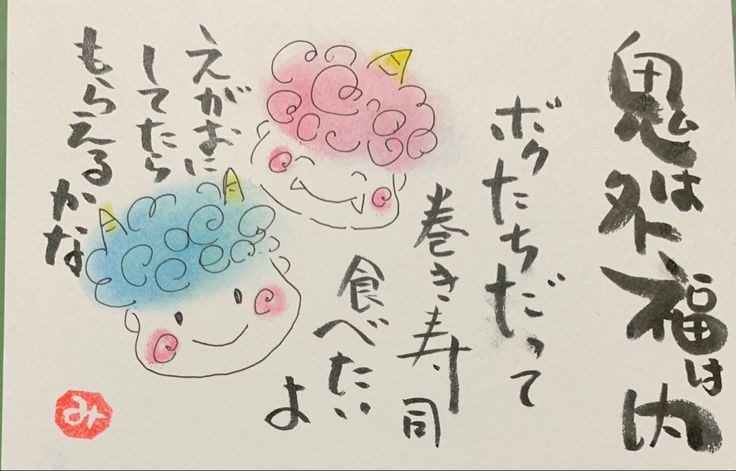 鬼は外福は内
ボクたちだって
巻き寿司
食べたい
よ
えがおに
してたら
もらえるかな
み